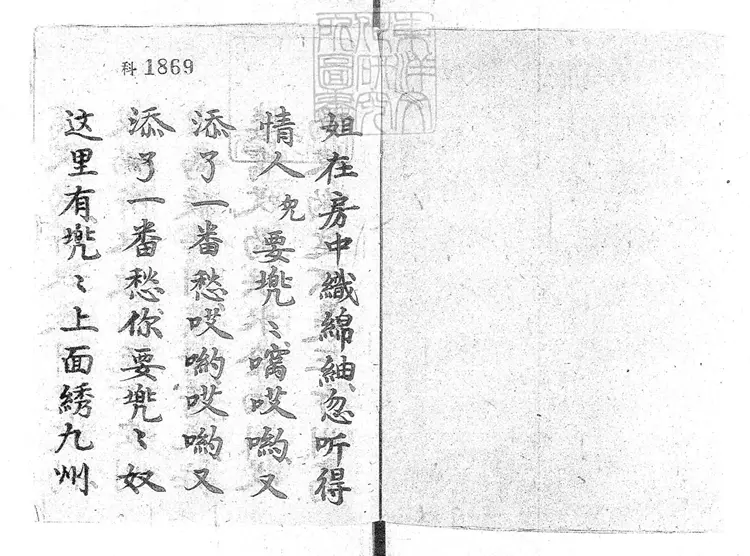 科 1869
姐在房中織綿紬忽听得
情人兒要兠〻嚆哎喲又
添了一番愁哎喲哎喲又
添了一番愁你要兠〻奴
这里有兠〻上面綉九州